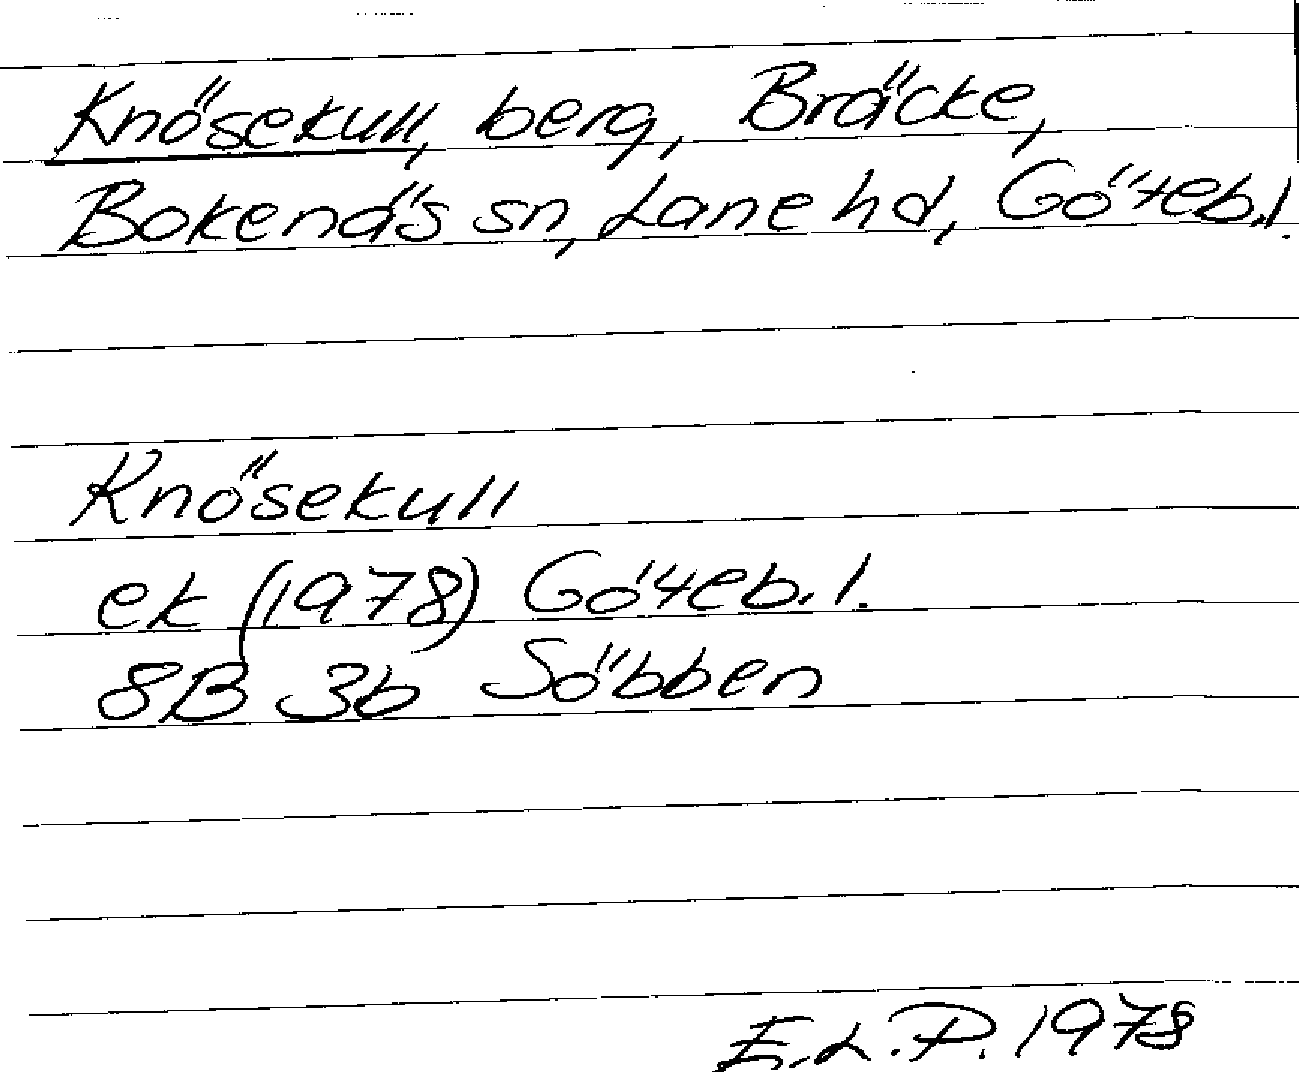 Knösekull, berg, Bräcke,
Bokenäs sn, Lane hd, Göteb.l.
Knösekull
ek (1978) Göteb.l.
8B 3b Söbben
E.L.P. 1978